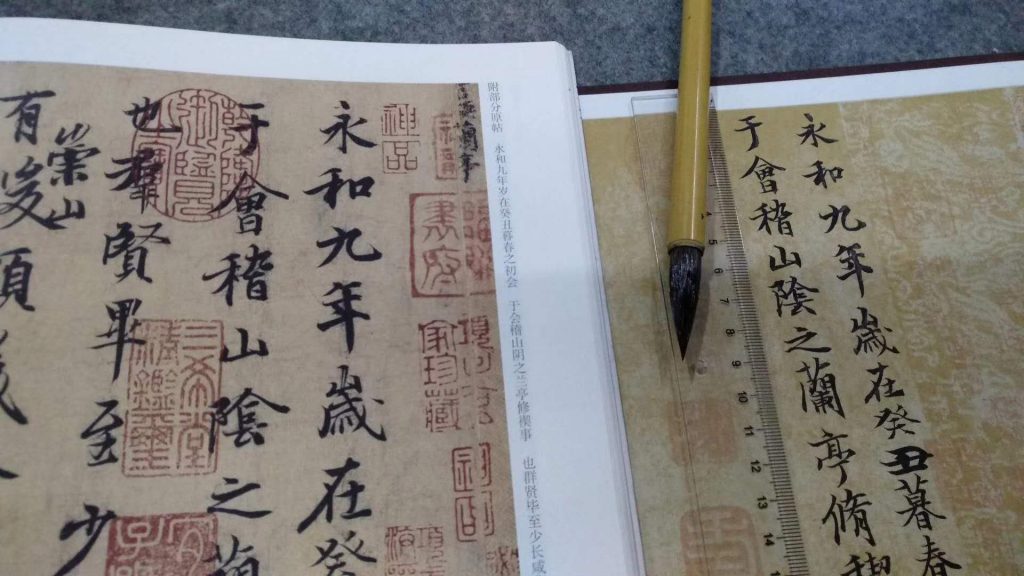 附部分原帖 永和九年岁在癸丑暮春之初会 于会稽山阴之兰亭修禊事 也群贤毕至少长咸
神品
永和九年歲在癸
于會稽山陰之蘭
也羣賢畢至少
崇山
有
家珍藏
三希堂精鑑璽
永和九年歲在癸丑暮春
于會稽山陰之蘭亭脩禊
5
6
7
8
9
10
11
12
13
14